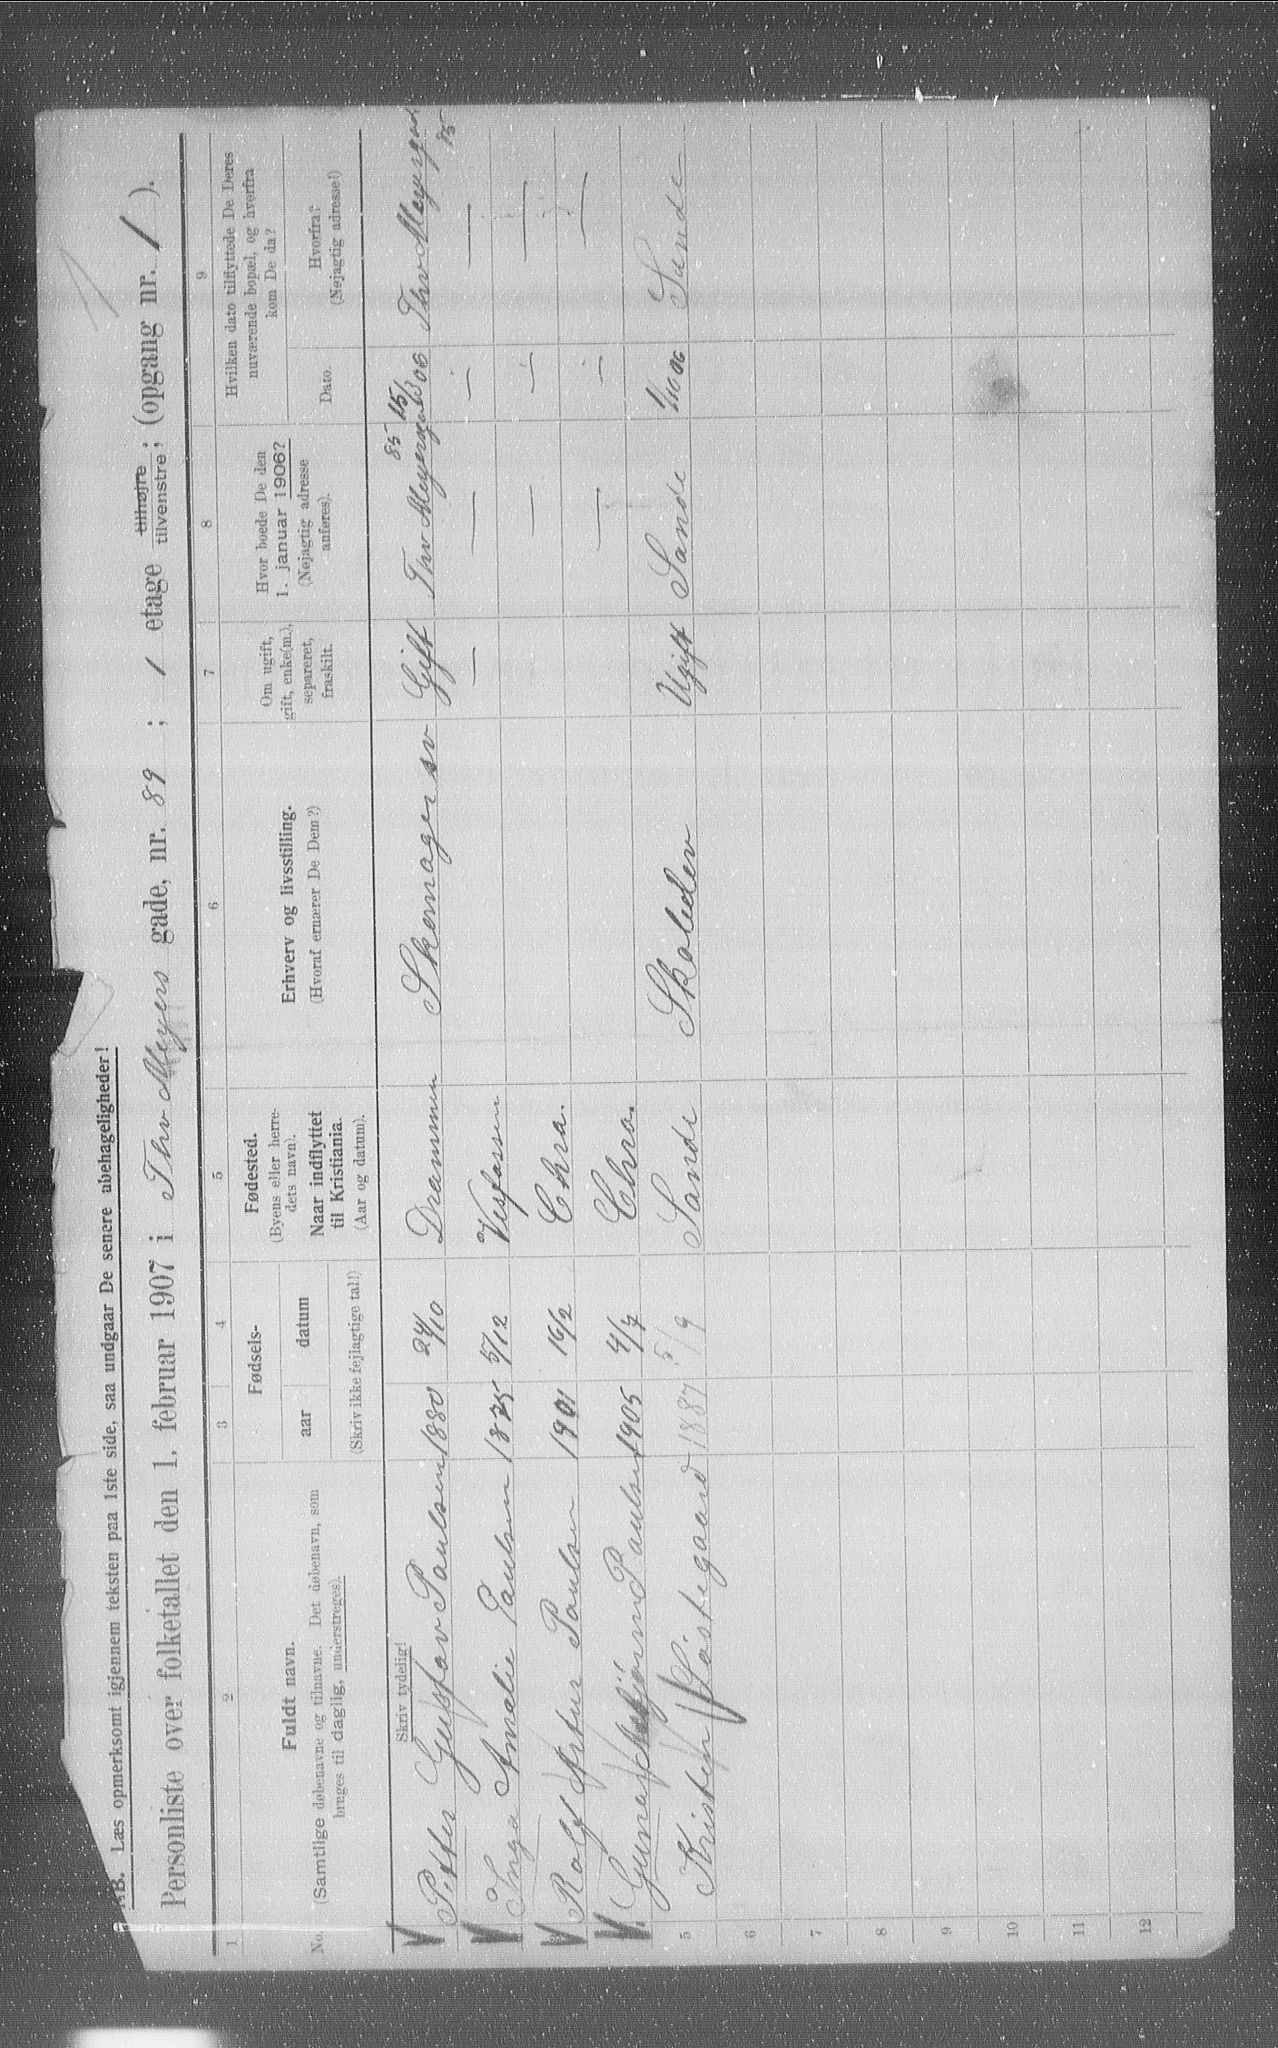 NB. Læs opmerksomt igjennem teksten paa 1ste side, saa undgaar De senere ubehageligheder!
Personliste over folketallet den 1. februar 1907 i Thv Meyers gade, nr. 89 ; 1 etage tilhøjre tilvenstre; (opgang nr. 1 ).
1 2 3 4 5 6 7 8 9
No.
Fuldt navn.
(Samtlige døbenavne og tilnavne. Det døbenavn, som
bruges til daglig, understreges).
Fødsels-
aar datum
(Skriv ikke fejlagtige tal!)
Fødested.
(Byens eller herre-
dets navn).
Naar indflyttet
til Kristiania.
(Aar og datum).
Erhverv og livsstilling.
(Hvoraf ernærer De Dem?)
Om ugift,
gift, enke(m.),
separeret,
fraskilt.
Hvor boede De den
1. januar 1906?
(Nøjagtig adresse
anføres).
Hvilken dato tilflyttede De Deres
nuværende bopæl, og hvorfra
kom De da?
Dato.
Hvorfra?
(Nøjagtig adresse!)
Skriv tydelig!
Petter Gustav Paulsen 1880 24/10 Drammen Skomager sv Gift Thv Meyersgad 85 15/3 06 Thv Meyersgad 85
Inga Amalie Paulsen 1875 5/12 — — — —
Rolf Artur Paulsen 1901 16/2 Chra. — — —
Gunar Paulsen 1905 4/7 Chra. — — —
5 Kristen 1887 5/9 Sande Ugift Sande 1/10 06 Sande
6
7
8
9
10
11
12